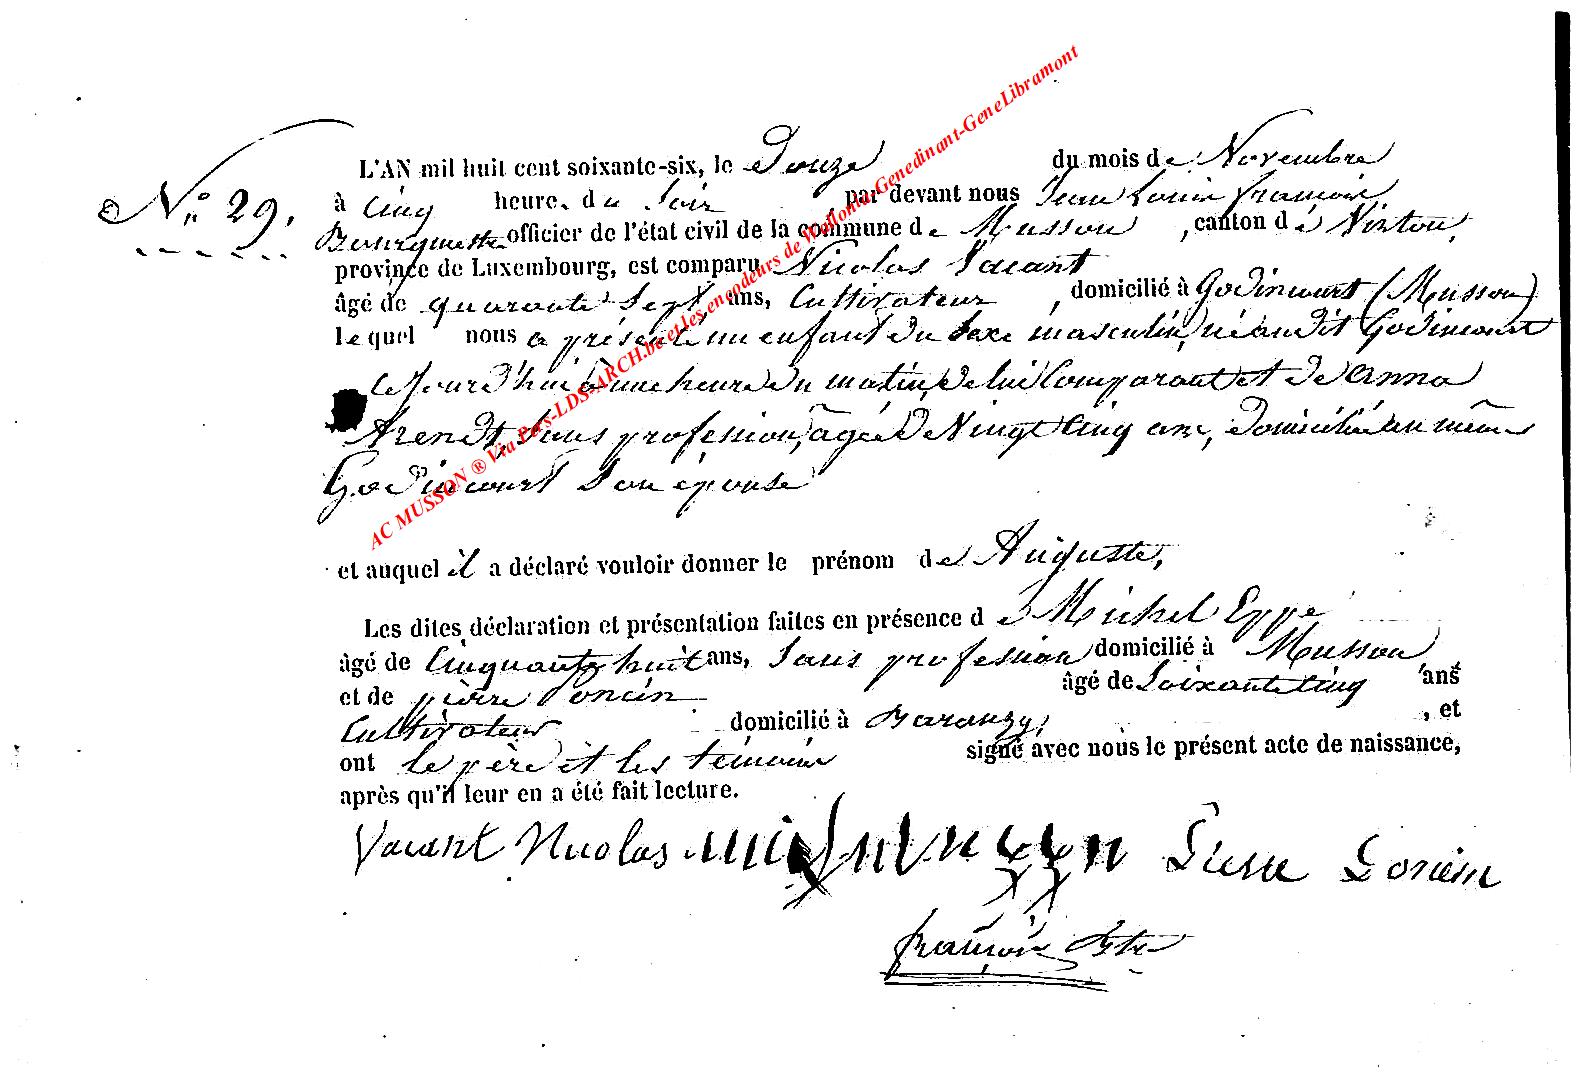 N° 29.
L'AN mil huit cent soixante-six, le Douze du mois de Novembre
à Cinq heure. du Soir par devant nous Jean Louis françois
Bourguette officier de l'état civil de la commune de Musson, canton de Virton,
province de Luxembourg, est comparu Nicolas Vacant
âgé de quarante Sept ans, Cultivateur, domicilié à Godincourt (Musson)
lequel nous a présenté un enfant du Sexe masculin, né au dit Godincourt
cejourd'hui à une heure du matin, de lui Comparant et de anna
Arendt, Sans profession, âgée de Vingt Cinq ans, domiciliée au même
Godincourt Son épouse
et auquel il a déclaré vouloir donner le prénom de Auguste,
Les dites déclaration et présentation faites en présence de Michel Eppe
âgé de Cinquante huit ans, Sans profession domicilié à Musson
et de pierre Poncin âgé de Soixante Cinq ans
Cultivateur domicilié à Baranzy, et
ont le père et les témoins signé avec nous le présent acte de naissance,
après qu'il leur en a été fait lecture.
Vacant Nicolas Pierre Poncin
françois
AC MUSSON ® Via Pers-LDS-ARCH.be et les encodeurs de Wallonia-Genedinant-GeneLibramont